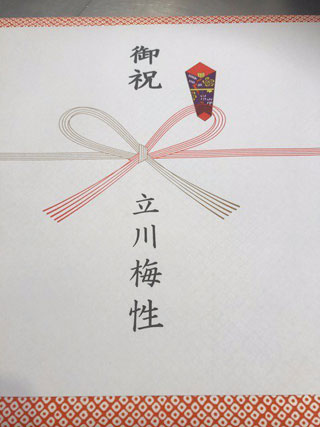 御祝
立川梅性